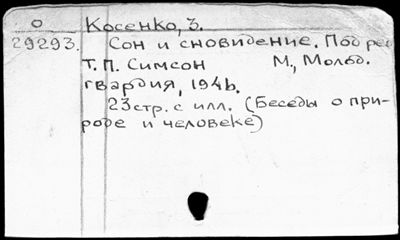 О Косенко, З.
29293. Сон и сновидение. Под ред
Т. П. Симсон М., Молод.
гвардия, 1946.
23 стр. с илл. (Беседы о при-
роде и человеке)